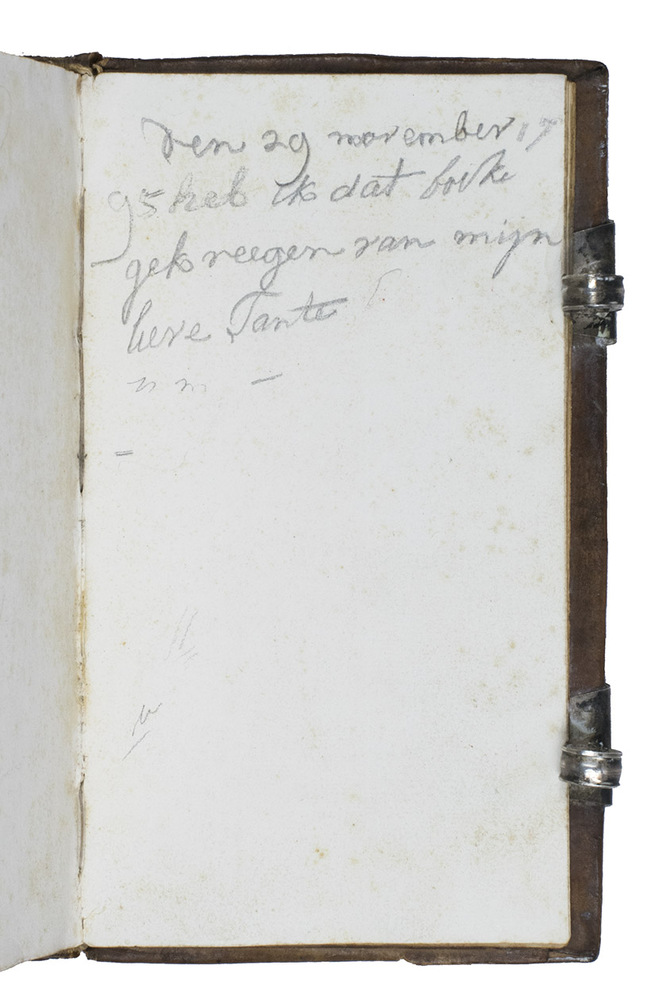 den 29 november 17
95 heb ik dat boike
gekreegen van mijn
lieve Tante
n m —